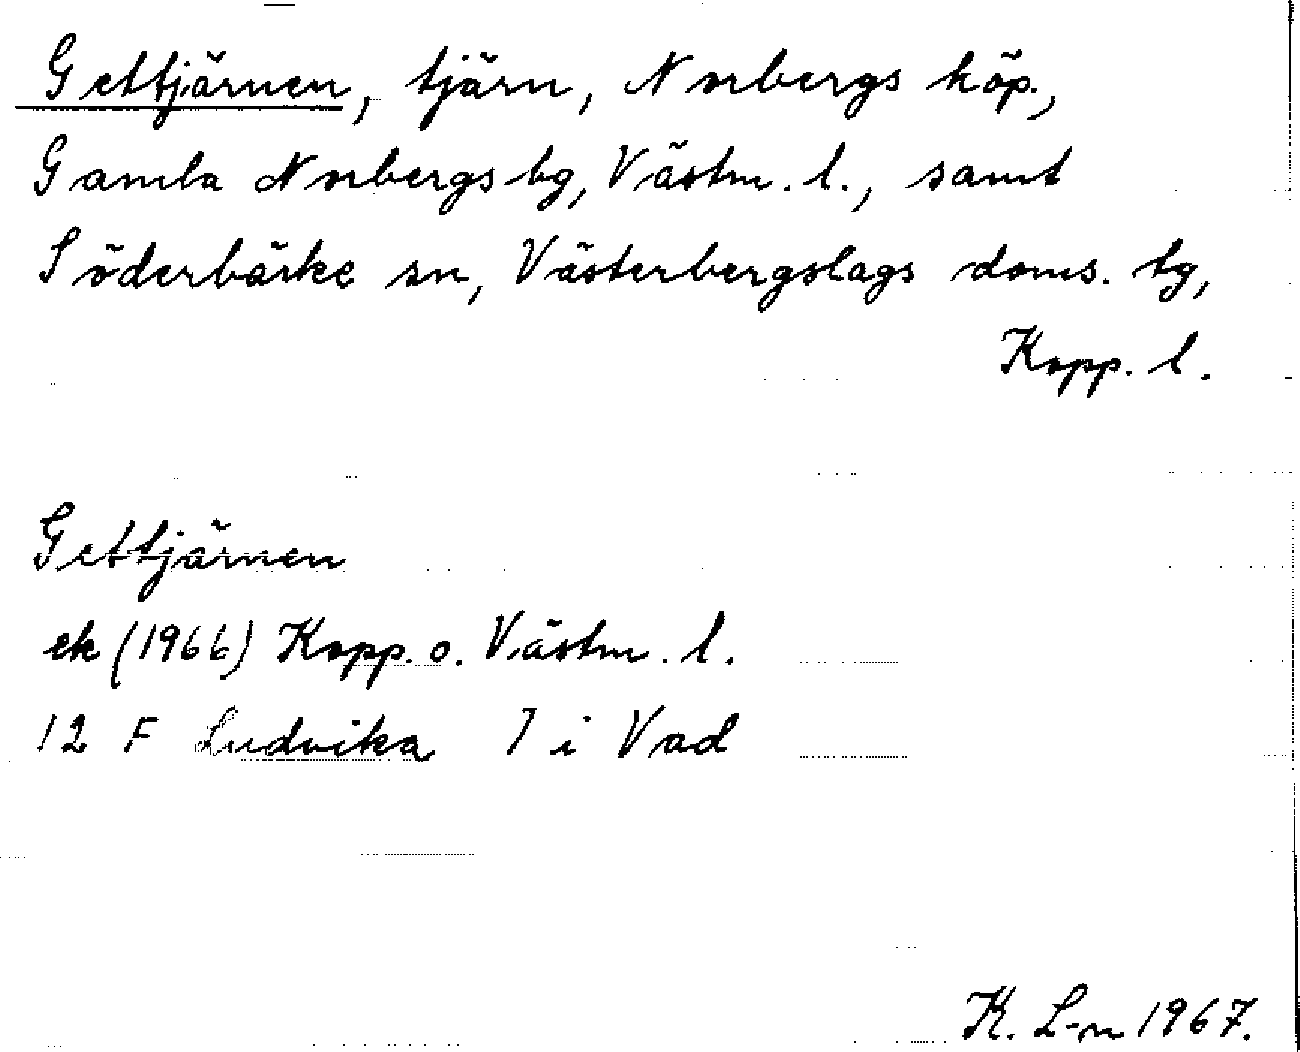 Gettjärnen, tjärn, Norbergs köp.,
Gamla Norbergs bg, Västm. l., samt
Söderbärke sn, Västerbergslags doms. tg,
Kopp. l.
Gettjärnen
ek (1966) Kopp. o. Västm. l.
12 F Ludvika 7 i Vad
K. L-n 1967.